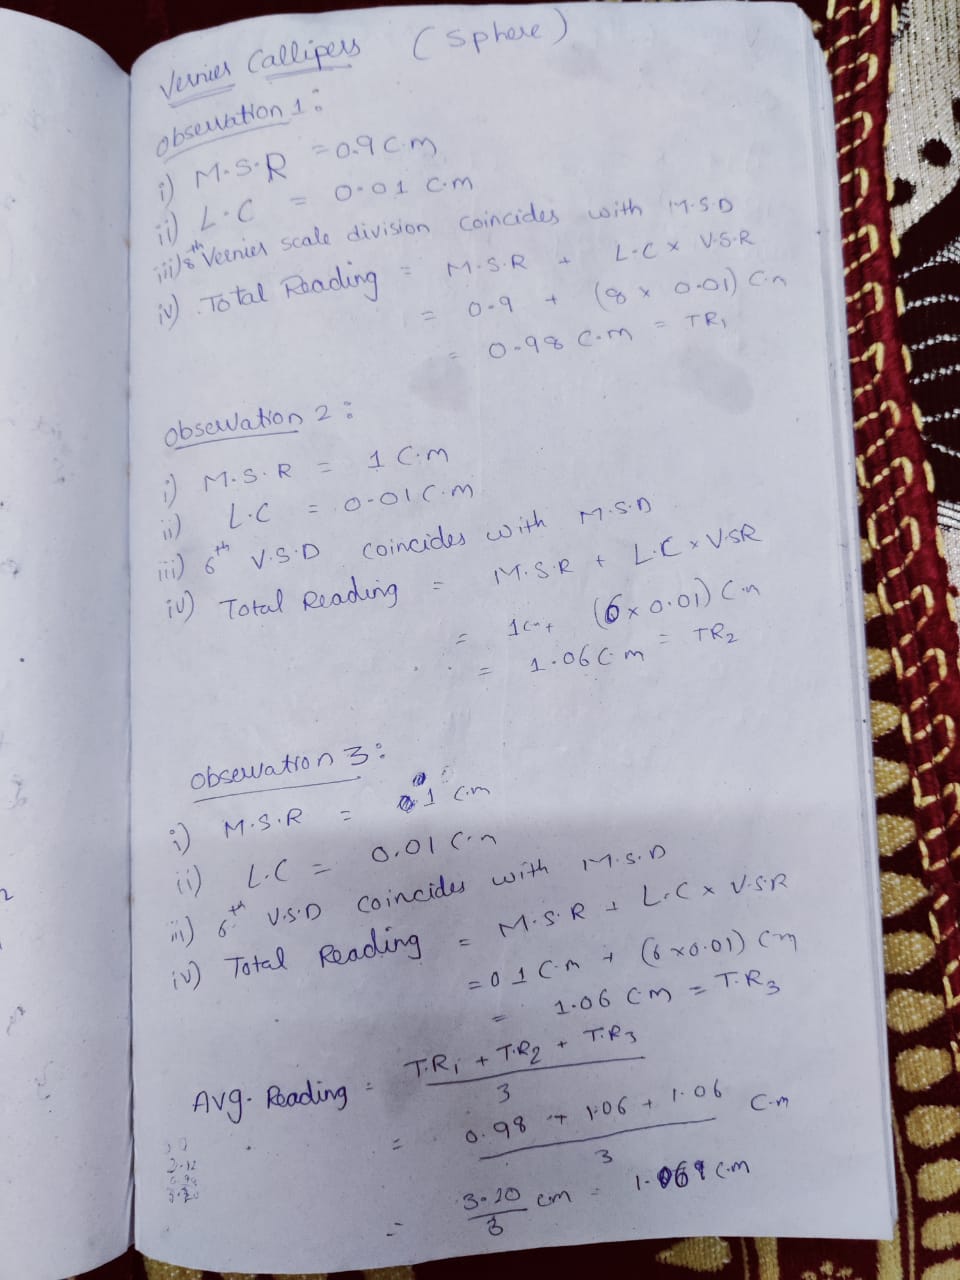 Vernier Callipers (Sphere)
Observation 1:
i) M.S.R = 0.9 C.m
ii) L.C = 0.01 C.m
iii) 8th Vernier scale division coincides with M.S.D
iv) Total Reading = M.S.R + L.C x V.S.R
= 0.9 + (8 x 0.01) Cm
= 0.98 C.m = TR1
Observation 2:
i) M.S.R = 1 C.m
ii) L.C = 0.01 C.m
iii) 6th V.S.D coincides with M.S.D
iv) Total Reading = M.S.R + L.C x V.SR
= 1cm + (6 x 0.01) Cm
= 1.06 C.m = TR2
Observation 3:
i) M.S.R = 1 cm
ii) L.C = 0.01 Cm
iii) 6th V.S.D coincides with M.S.D
iv) Total Reading = M.S.R + L.C x V.S.R
= 0 1 C.m + (6 x 0.01) Cm
= 1.06 Cm = T.R3
Avg. Reading = T.R1 + T.R2 + T.R3
3
= 0.98 + 1.06 + 1.06 C.m
3
= 3.10 cm = C.m
3
2.12